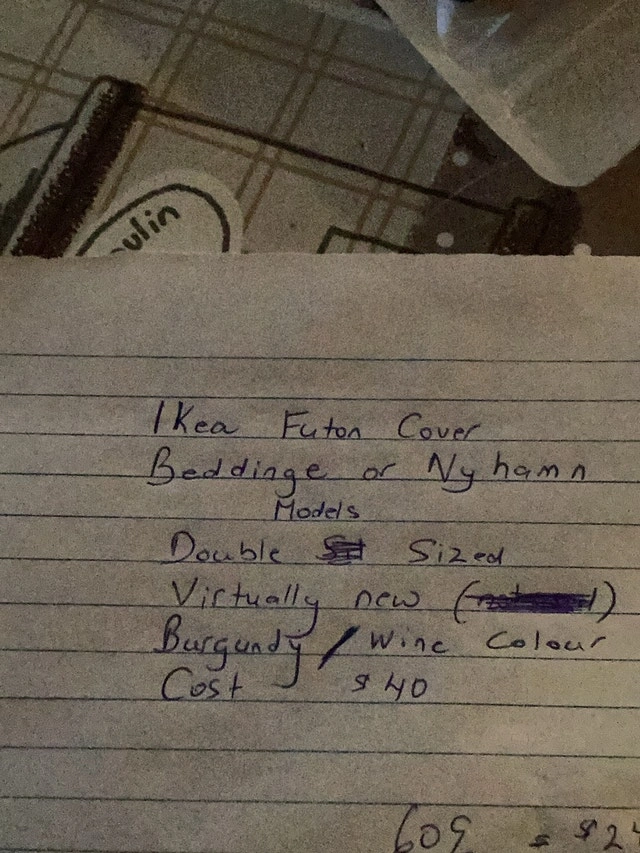 ulin
Ikea Futon Cover
Beddinge or Nyhamn
Models
Double Sized
Virtually new ( )
Burgundy / Wine Colour
Cost $40
= $2